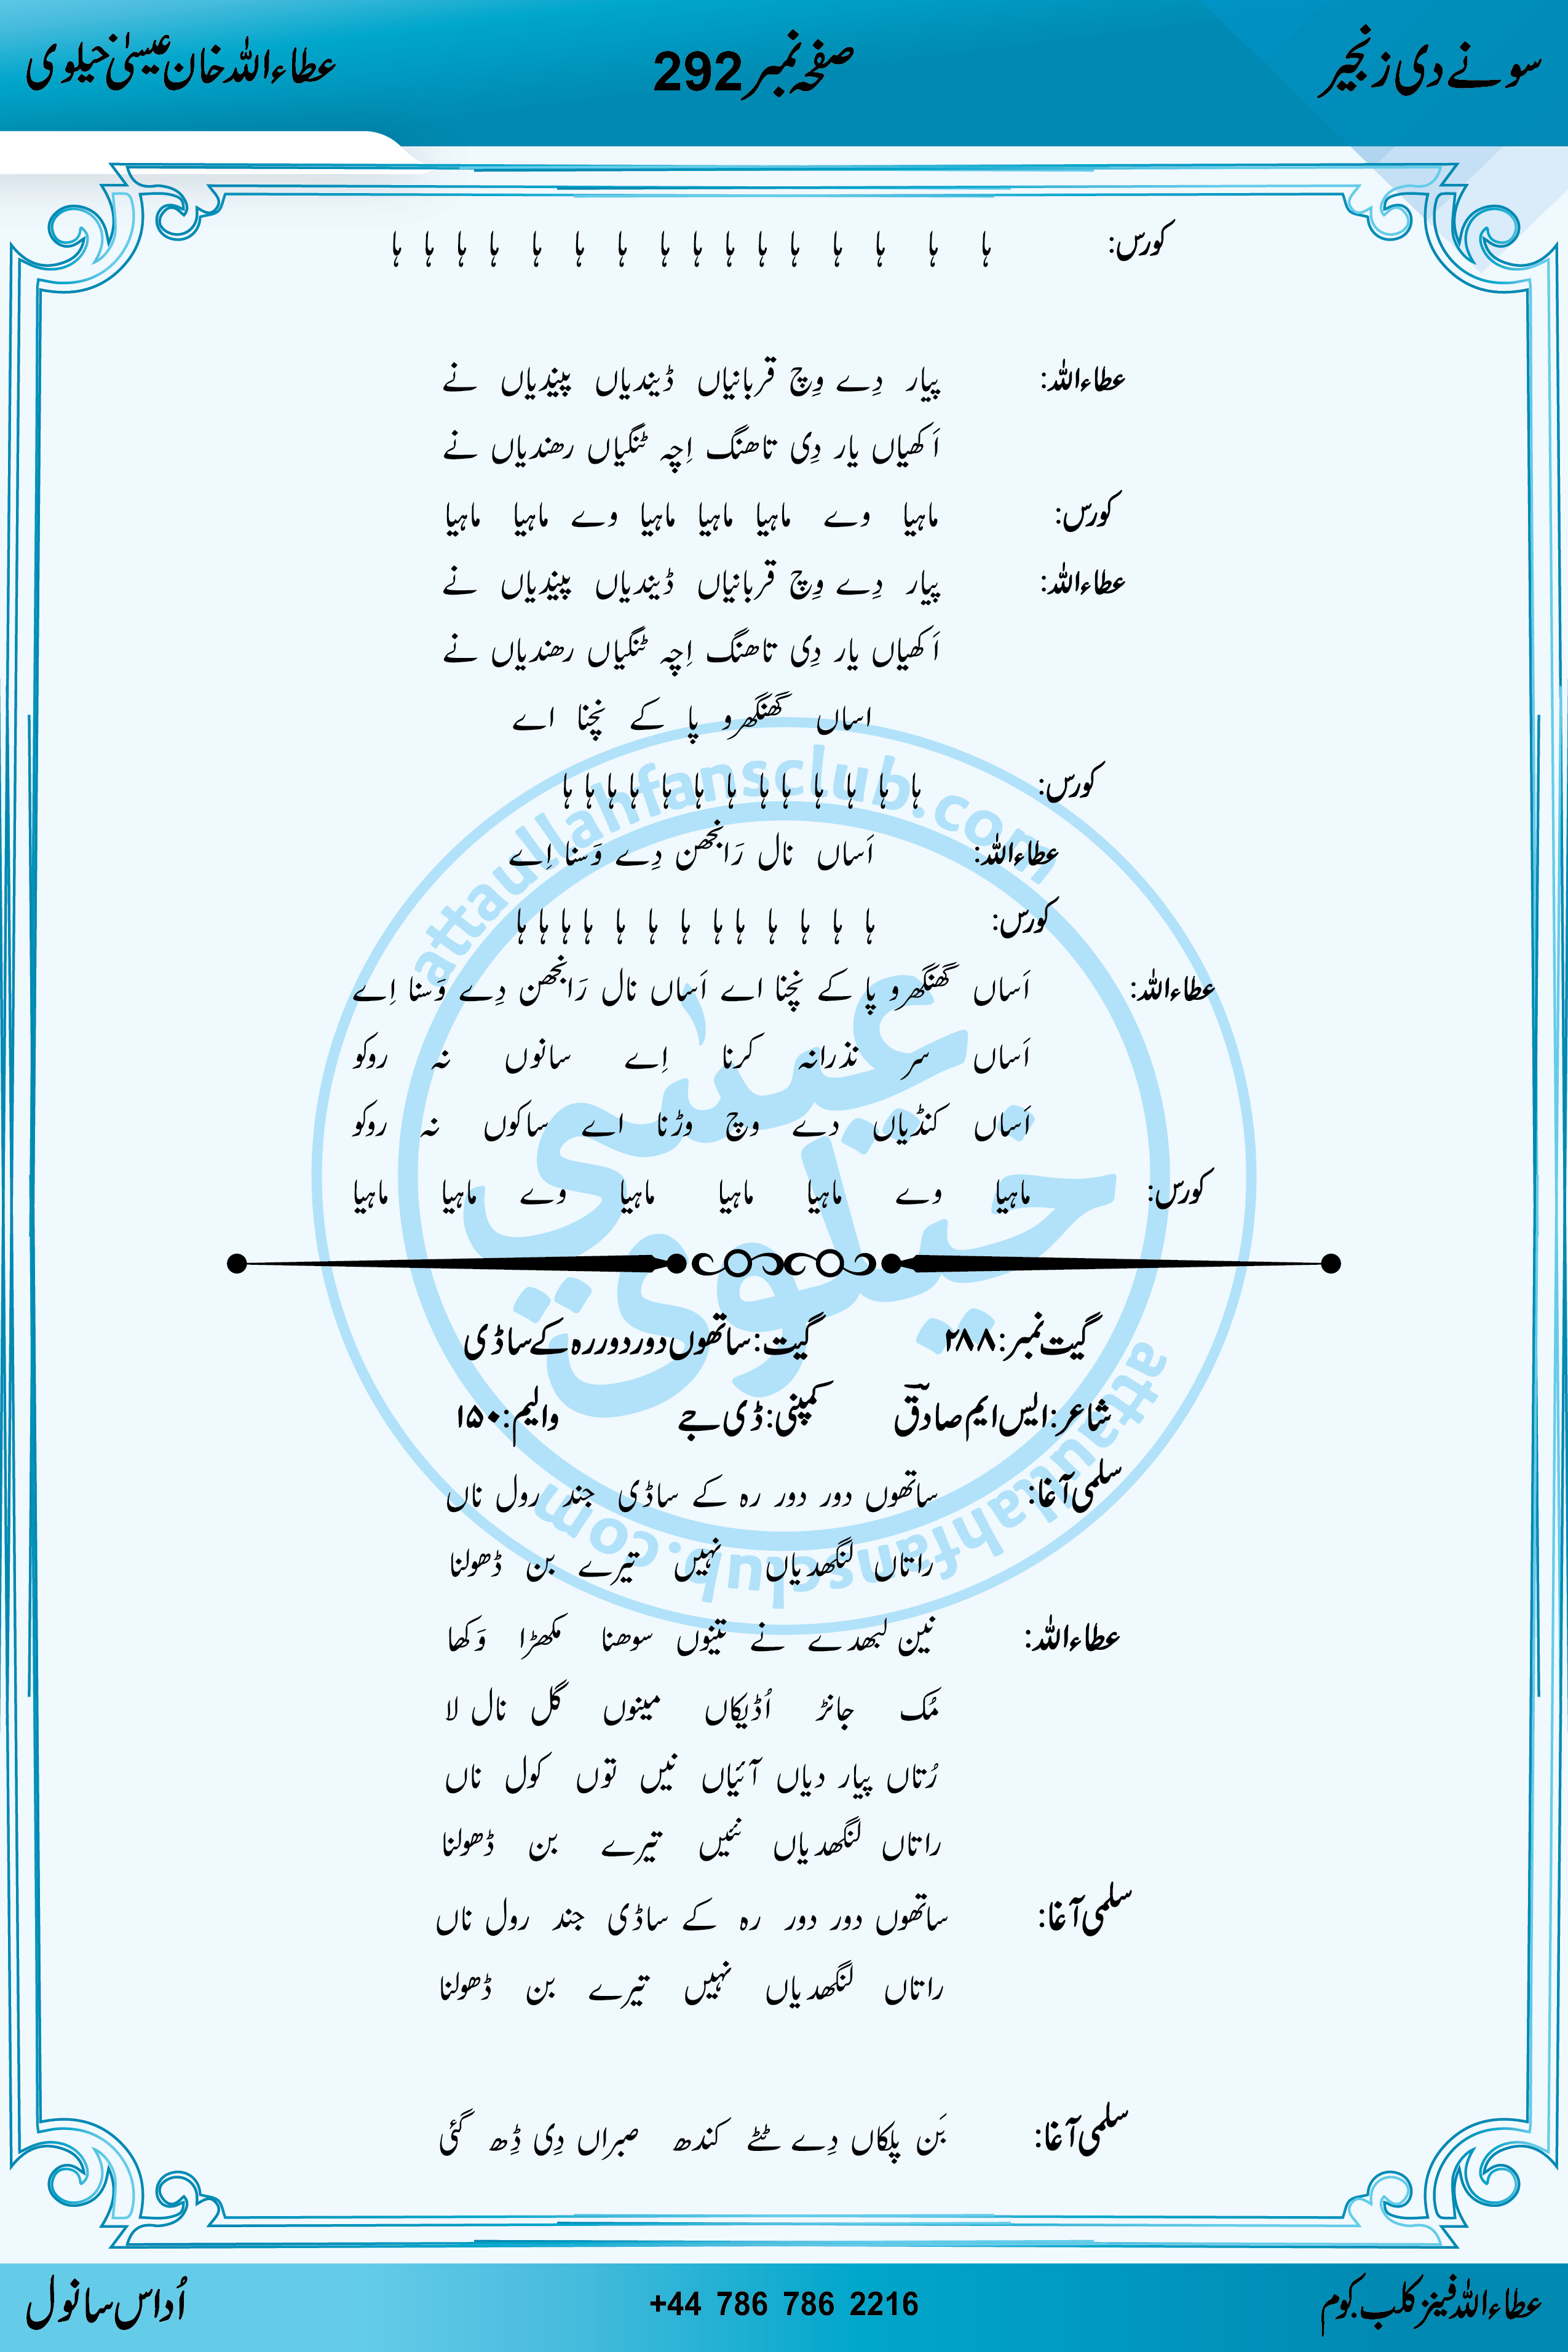 سونے دی زنجیر صفحہ نمبر 292 عطاءاللہ خان عیسیٰ خیلوی
کورس: ہا ہا ہا ہا ہا ہا ہا ہا ہا ہا ہا ہا ہا ہا ہا ہا
عطاءاللہ: پیار دِے وِچ قربانیاں ڈیندیاں پیندیاں نے
اَکھیاں یار دِی تاھنگ اِچہ ٹنگیاں رھندیاں نے
کورس: ماہیا وے ماہیا ماہیا ماہیا وے ماہیا ماہیا
عطاءاللہ: پیار دِے وِچ قربانیاں ڈیندیاں پیندیاں نے
اَکھیاں یار دِی تاھنگ اِچہ ٹنگیاں رھندیاں نے
اساں گھنگھرو پا کے نچنا اے
کورس: ہا ہا ہا ہا ہا ہا ہا ہا ہا ہا ہا ہا ہا
عطاءاللہ: اَساں نال رَانجھن دِے وَسنا اِے
کورس: ہا ہا ہا ہا ہا ہا ہا ہا ہا ہا ہا ہا ہا
عطاءاللہ: اَساں گھنگھرو پا کے نچنا اے اَساں نال رَانجھن دِے وَسنا اِے
اَساں سر نذرانہ کرنا اِے سانوں نہ روکو
اَساں کنڈیاں دے وچ وڑنا اے ساکوں نہ روکو
کورس: ماہیا وے ماہیا ماہیا ماہیا وے ماہیا ماہیا
گیت نمبر: ۲۸۸ گیت: ساتھوں دور دور رہ کے ساڈی
شاعر: ایس ایم صادق کمپنی: ڈی جے والیم: ۱۵۰
سلمی آغا: ساتھوں دور دور رہ کے ساڈی جند رول ناں
راتاں لنگھدیاں نہیں تیرے بن ڈھولنا
عطاءاللہ: نین لبھدے نے تینوں سوھنا مکھڑا وَکھا
مُک جانڑ اُڈیکاں مینوں گل نال لا
رُتاں پیار دیاں آئیاں نیں توں کول ناں
راتاں لنگھدیاں نئیں تیرے بن ڈھولنا
سلمی آغا: ساتھوں دور دور رہ کے ساڈی جند رول ناں
راتاں لنگھدیاں نہیں تیرے بن ڈھولنا
سلمی آغا: بَن پلکاں دِے ٹٹے کندھ صبراں دِی ڈِھ گئی
عطاءاللہ فینز کلب.کوم +44 786 786 2216 اُداس سانول
attaullahfansclub.com
عیسیٰ
خیلوی
attaullahfansclub.com